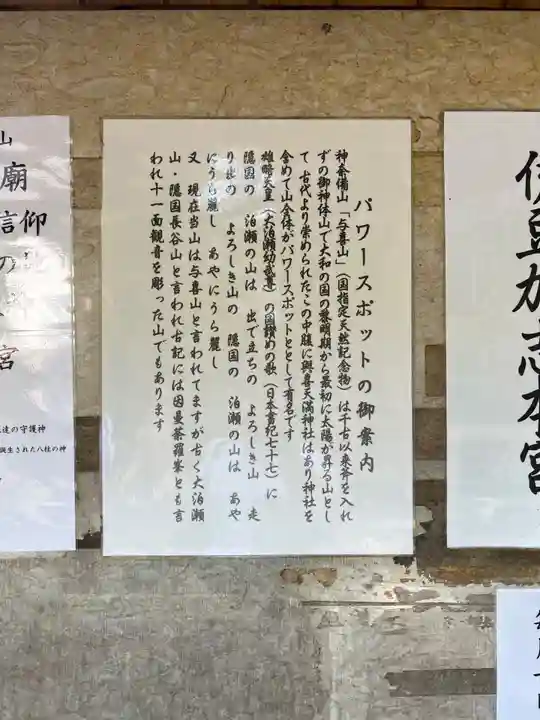 伊豆加志本宮
パワースポットの御案内
神奈備山「与喜山」(国指定天然記念物)は千古以来斧を入れ
ずの御神体山で大和の国の黎明期から最初に太陽が昇る山とし
て古代より崇められたこの中腹に與喜天満神社はあり神社を
含めて山全体がパワースポットととして有名です
雄略天皇(大泊瀬幼武尊)の国讃めの歌(日本書紀七十七)に
隠国の 泊瀬の山は 出で立ちの よろしき山 走
り出の よろしき山の 隠国の 泊瀬の山は あや
にうら麗し あやにうら麗し
又 現在当山は与喜山と言われてますが古く大泊瀬
山・隠国長谷山と言われ古記には因曼荼羅峯とも言
われ十一面観音を彫った山でもあります
山
廟
信仰
の
宮
達の守護神
誕生された八柱の神